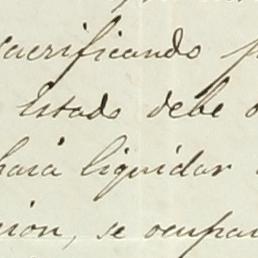 sacrificando p
Estado debe o
haia liquidar
cion, se ocupar